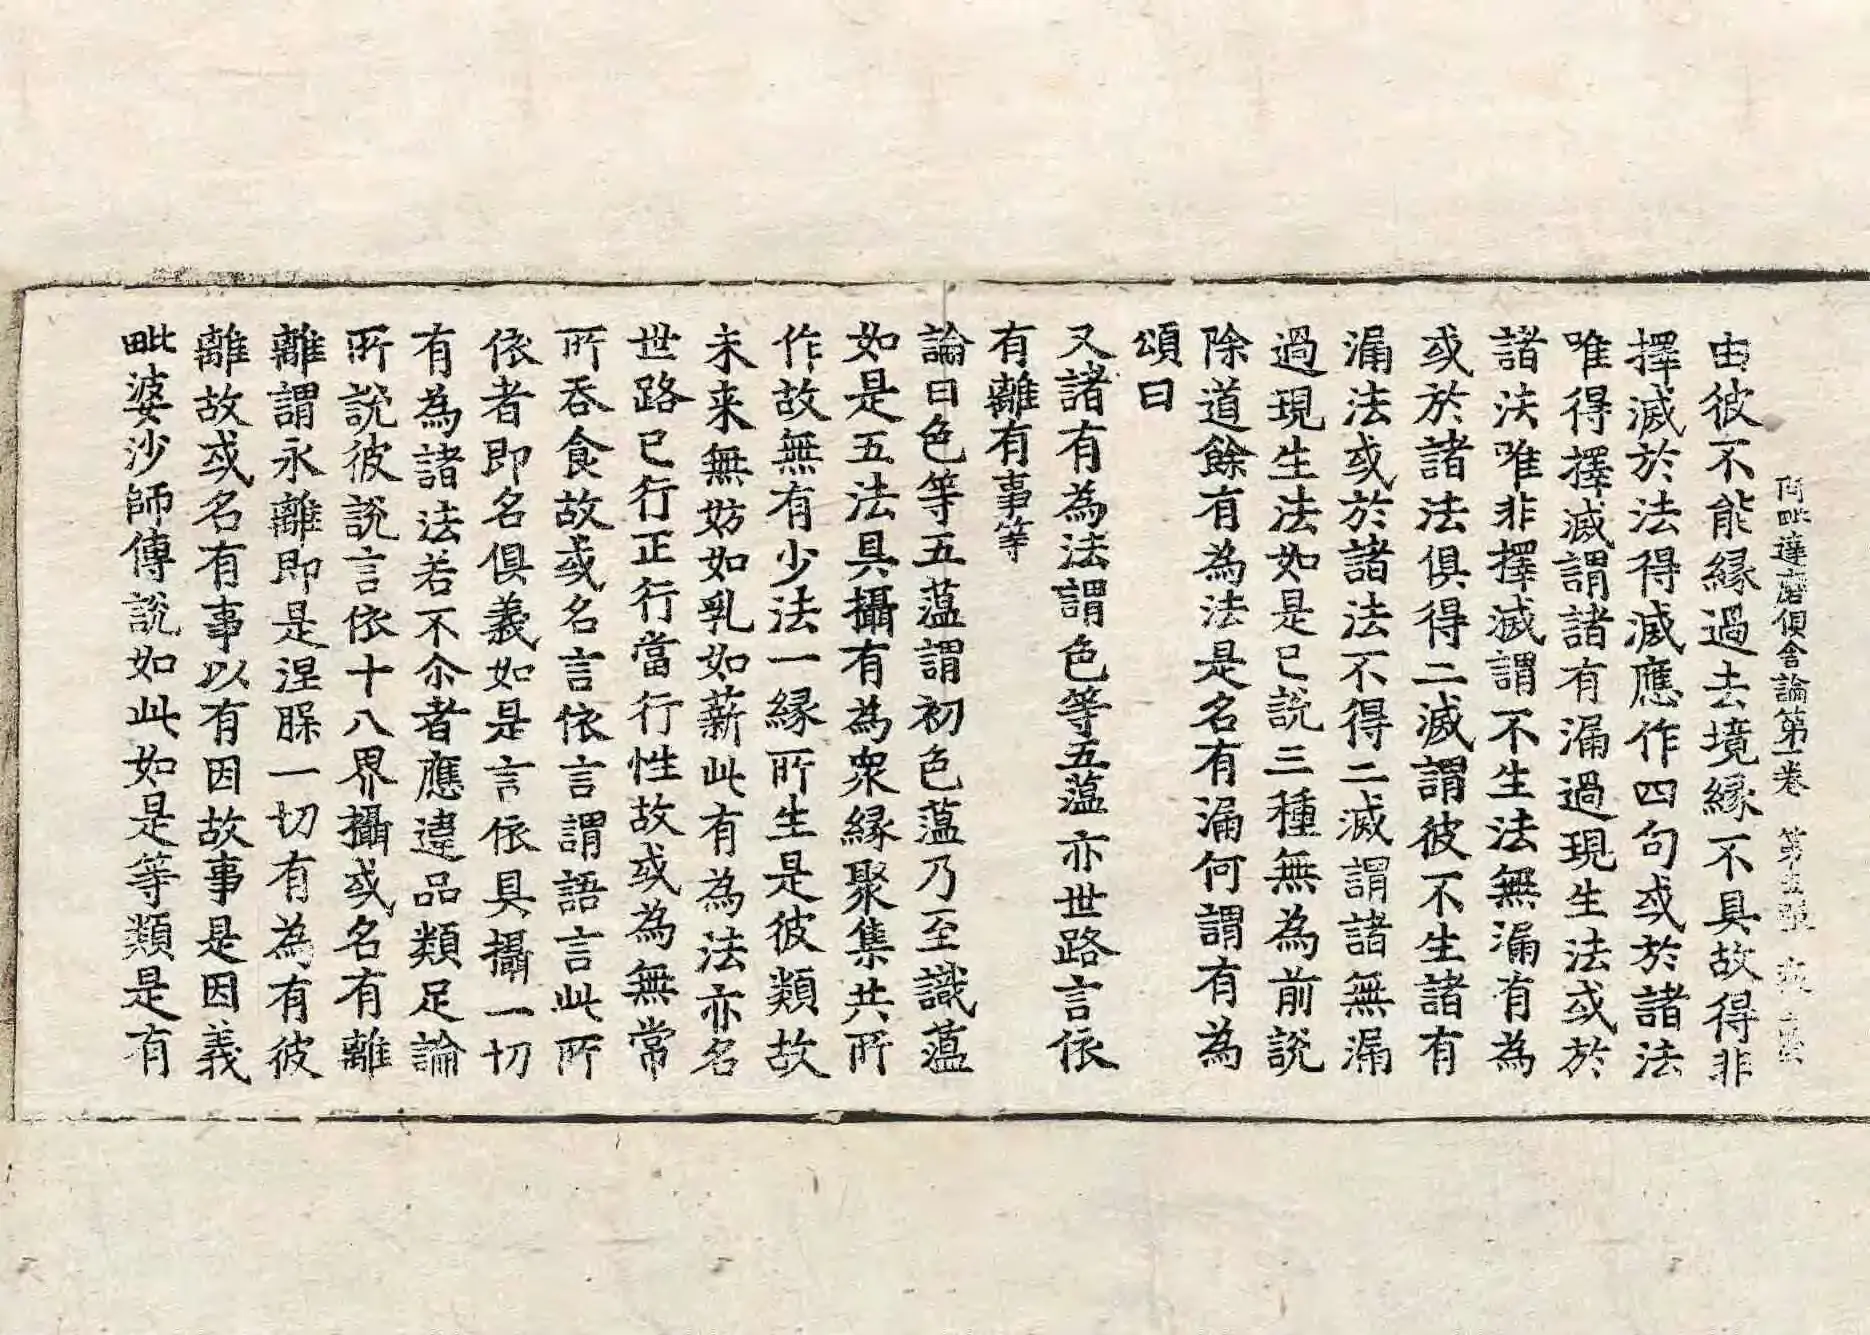 阿毗達磨俱舍論第一卷 第五張
由彼不能緣過去境緣不具故得非
擇滅於法得滅應作四句或於諸法
唯得擇滅謂諸有漏過現生法或於
諸法唯非擇滅謂不生法無漏有為
或於諸法俱得二滅謂彼不生諸有
漏法或於諸法不得二滅謂諸無漏
過現生法如是已說三種無為前說
除道餘有為法是名有漏何謂有為
頌曰
又諸有為法謂色等五薀亦世路言依
有離有事等
論曰色等五薀謂初色薀乃至識薀
如是五法具攝有為衆緣聚集共所
作故無有少法一緣所生是彼類故
未来無妨如乳如薪此有為法亦名
世路已行正行當行性故或為無常
所吞食故或名言依言謂語言此所
依者即名俱義如是言依具攝一切
有為諸法若不尒者應違品類足論
所說彼說言依十八界攝或名有離
離謂永離即是涅槃一切有為有彼
離故或名有事以有因故事是因義
毗婆沙師傳說如此如是等類是有